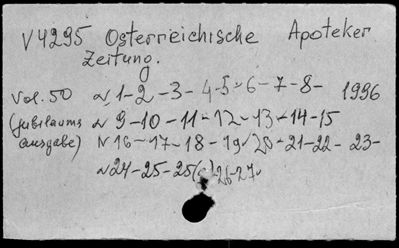 V4295 Österreichische Apoteker
Zeitung.
Vol. 50 N 1-2-3-4-5-6-7-8- 1996
(Jubiläums N 9-10-11-12-13-14-15
ausgabe) N 16-17-18-19-20-21-22-23-
N 24-25-25(c)26-27